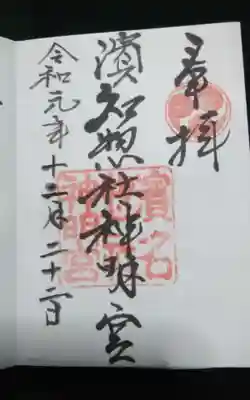 奉拝
濱名惣社神明宮
令和元年十二月二十二日
濱名
惣社
神明宮